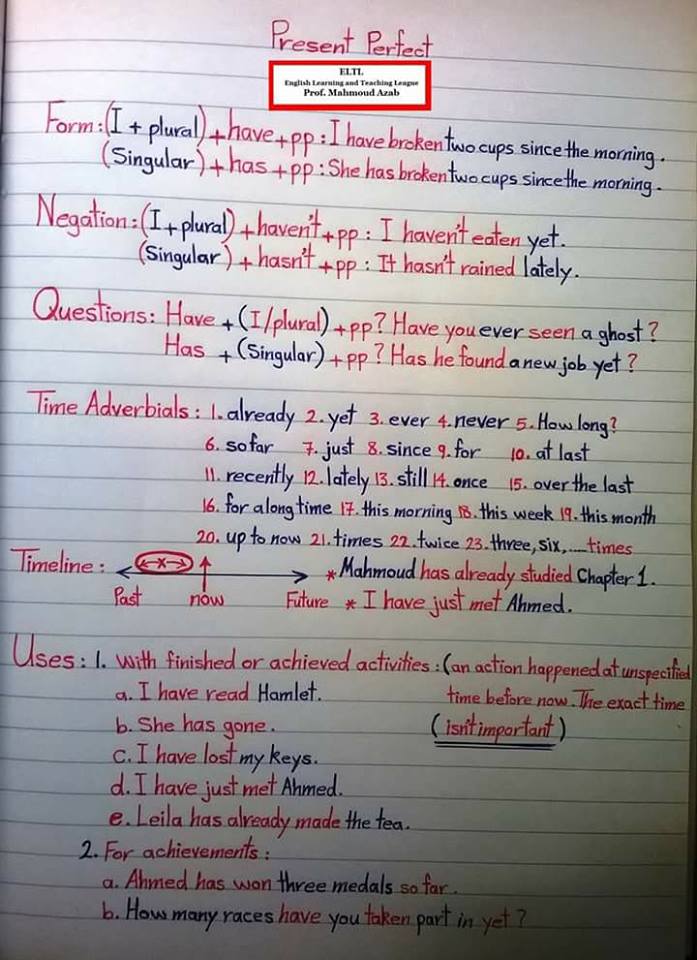 Present Perfect
ELTL
English Learning and Teaching League
Prof. Mahmoud Azab
Form: (I + plural) + have + pp : I have broken two cups since the morning.
(Singular) + has + pp : She has broken two cups since the morning.
Negation: (I + plural) + haven't + pp : I haven't eaten yet.
(Singular) + hasn't + pp : It hasn't rained lately.
Questions: Have + (I/plural) + pp? Have you ever seen a ghost?
Has + (Singular) + pp? Has he found a new job yet?
Time Adverbials : 1. already 2. yet 3. ever 4. never 5. How long?
6. so far 7. just 8. since 9. for 10. at last
11. recently 12. lately 13. still 14. once 15. over the last
16. for a long time 17. this morning 18. this week 19. this month
20. up to now 21. times 22. twice 23. three, six, ..... times
Timeline : * Mahmoud has already studied Chapter 1.
Past now Future * I have just met Ahmed.
Uses: 1. With finished or achieved activities : (an action happened at unspecified
a. I have read Hamlet. time before now. The exact time
b. She has gone. (isn't important)
c. I have lost my keys.
d. I have just met Ahmed.
e. Leila has already made the tea.
2. For achievements :
a. Ahmed has won three medals so far.
b. How many races have you taken part in yet?